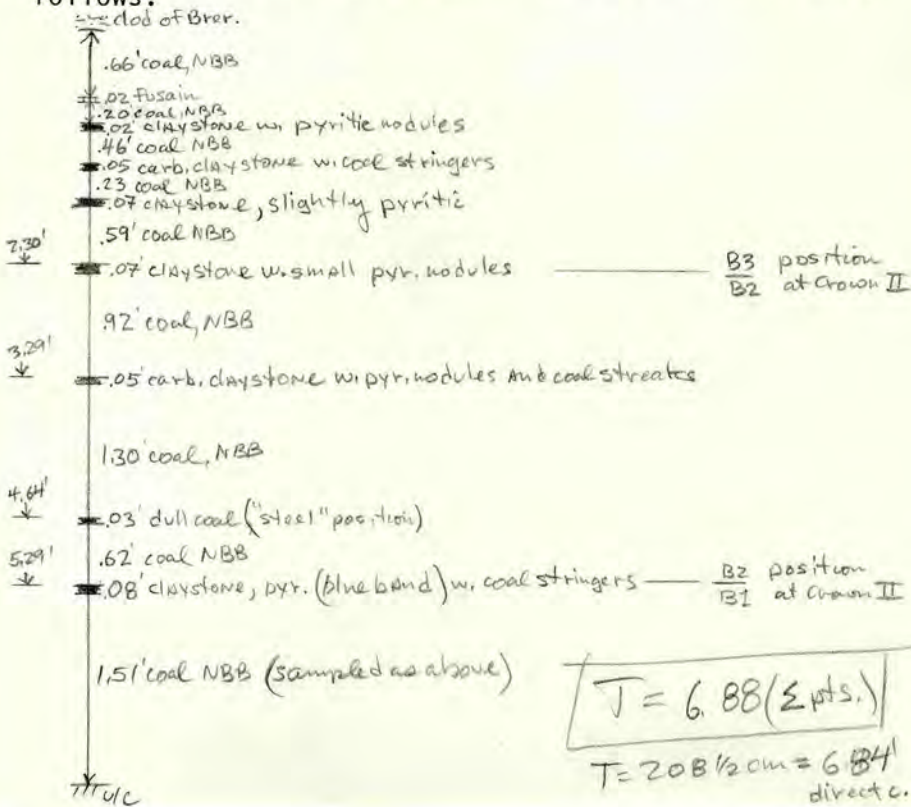 follows:
clod of Brer.
.66' coal, NBB
.02 fusain
.20' coal, NBB
.02' claystone w. pyritic nodules
.46' coal NBB
.05 carb. claystone w. coal stringers
.23 coal NBB
.07 claystone, slightly pyritic
.59' coal NBB
2.30'
.07' claystone w. small pyr. nodules
B3 position
B2 at Crown II
.92' coal, NBB
3.29'
.05' carb. claystone w. pyr. nodules and coal streaks
1.30' coal, NBB
4.64'
.03' dull coal ("steel" position)
.62' coal NBB
5.29'
.08' claystone, pyr. (blue band) w. coal stringers
B2 position
B1 at Crown II
1.51' coal NBB (sampled as above)
T = 6.88 (Σ pts.)
T = 208 1/2 cm = 6.84'
direct c.
u/c